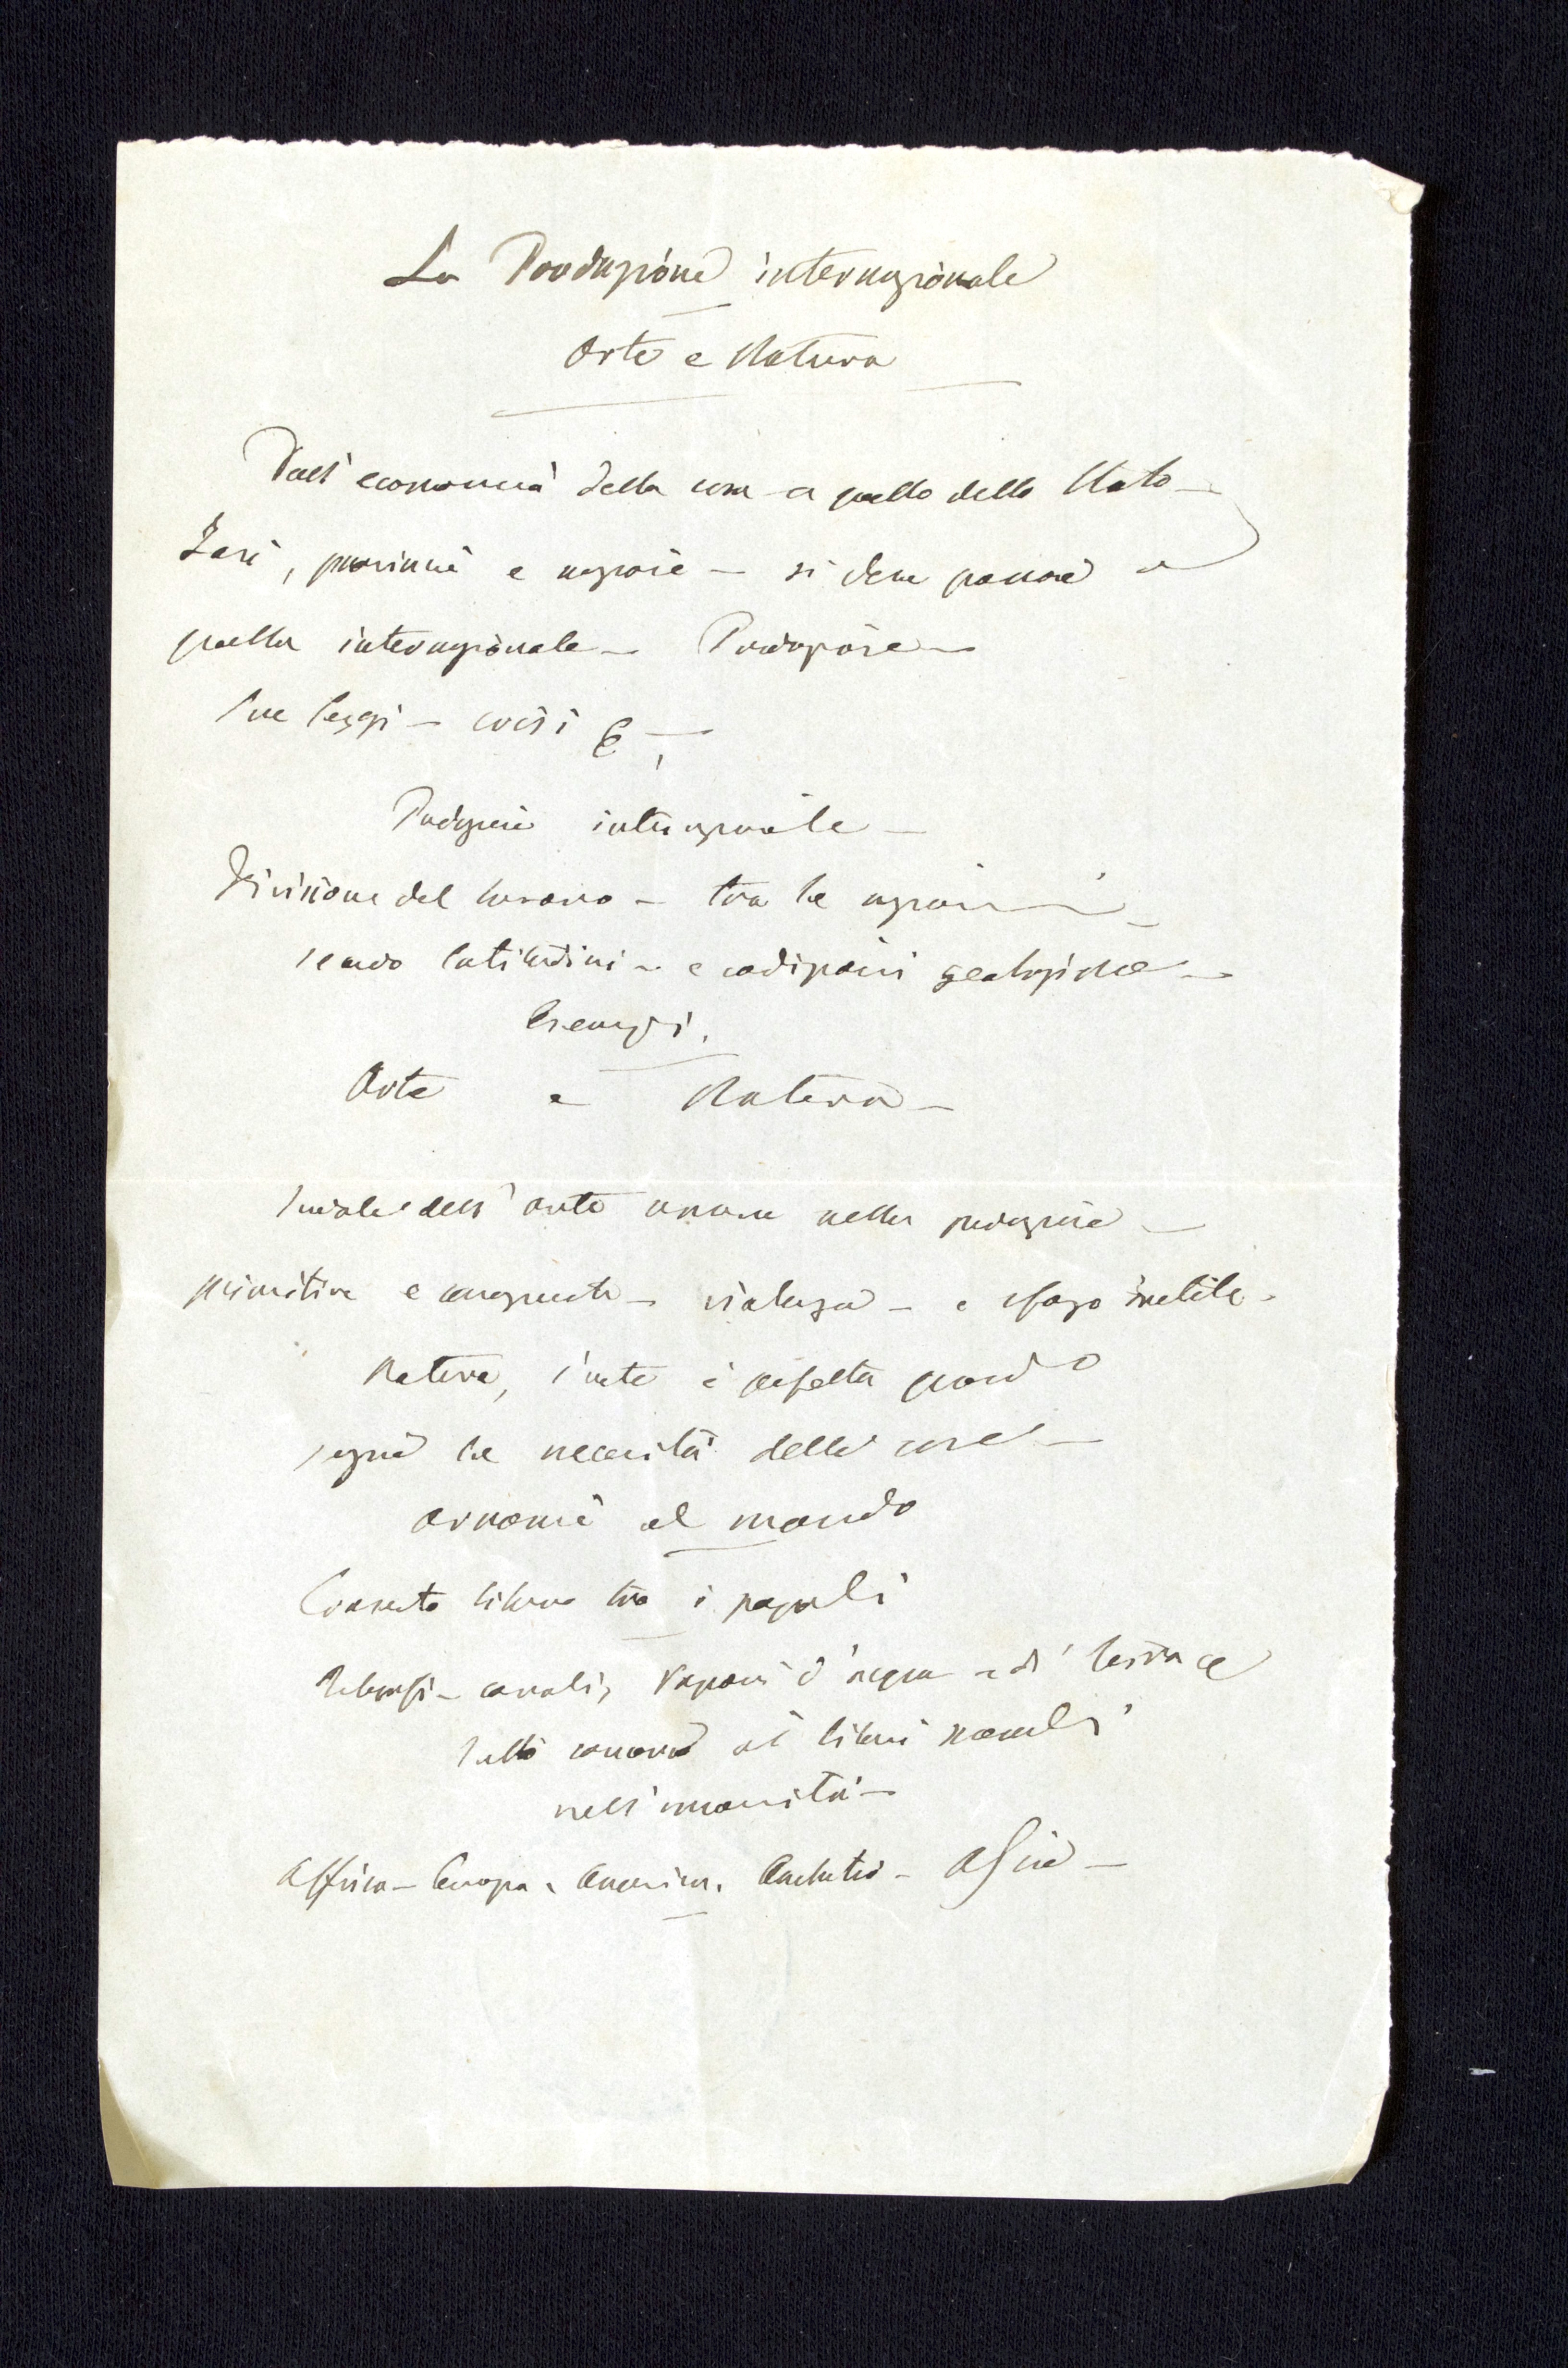 La Produzione internazionale
Arte e Natura
Dall'economia della casa a quella dello Stato
, provincia e nazione — si deve passare a
quella internazionale — Produzione —
Sue leggi — così è —
Produzione internazionale —
Divisione del lavoro — tra le nazioni —
secondo latitudini — e condizioni geologiche —
Esempi.
Arte e Natura —
dell'arte umana nella produzione —
primitiva e — violenza — e sforzo inutile —
Natura, l'arte è perfetta quando
segue la necessità delle cose —
armonia al mondo
Consorzio libero tra i popoli
Telegrafi — canali, Vapori d'acqua e di terra e
tutto ai liberi
nell'umanità —
Affrica — Europa — America. Australia — Asia —